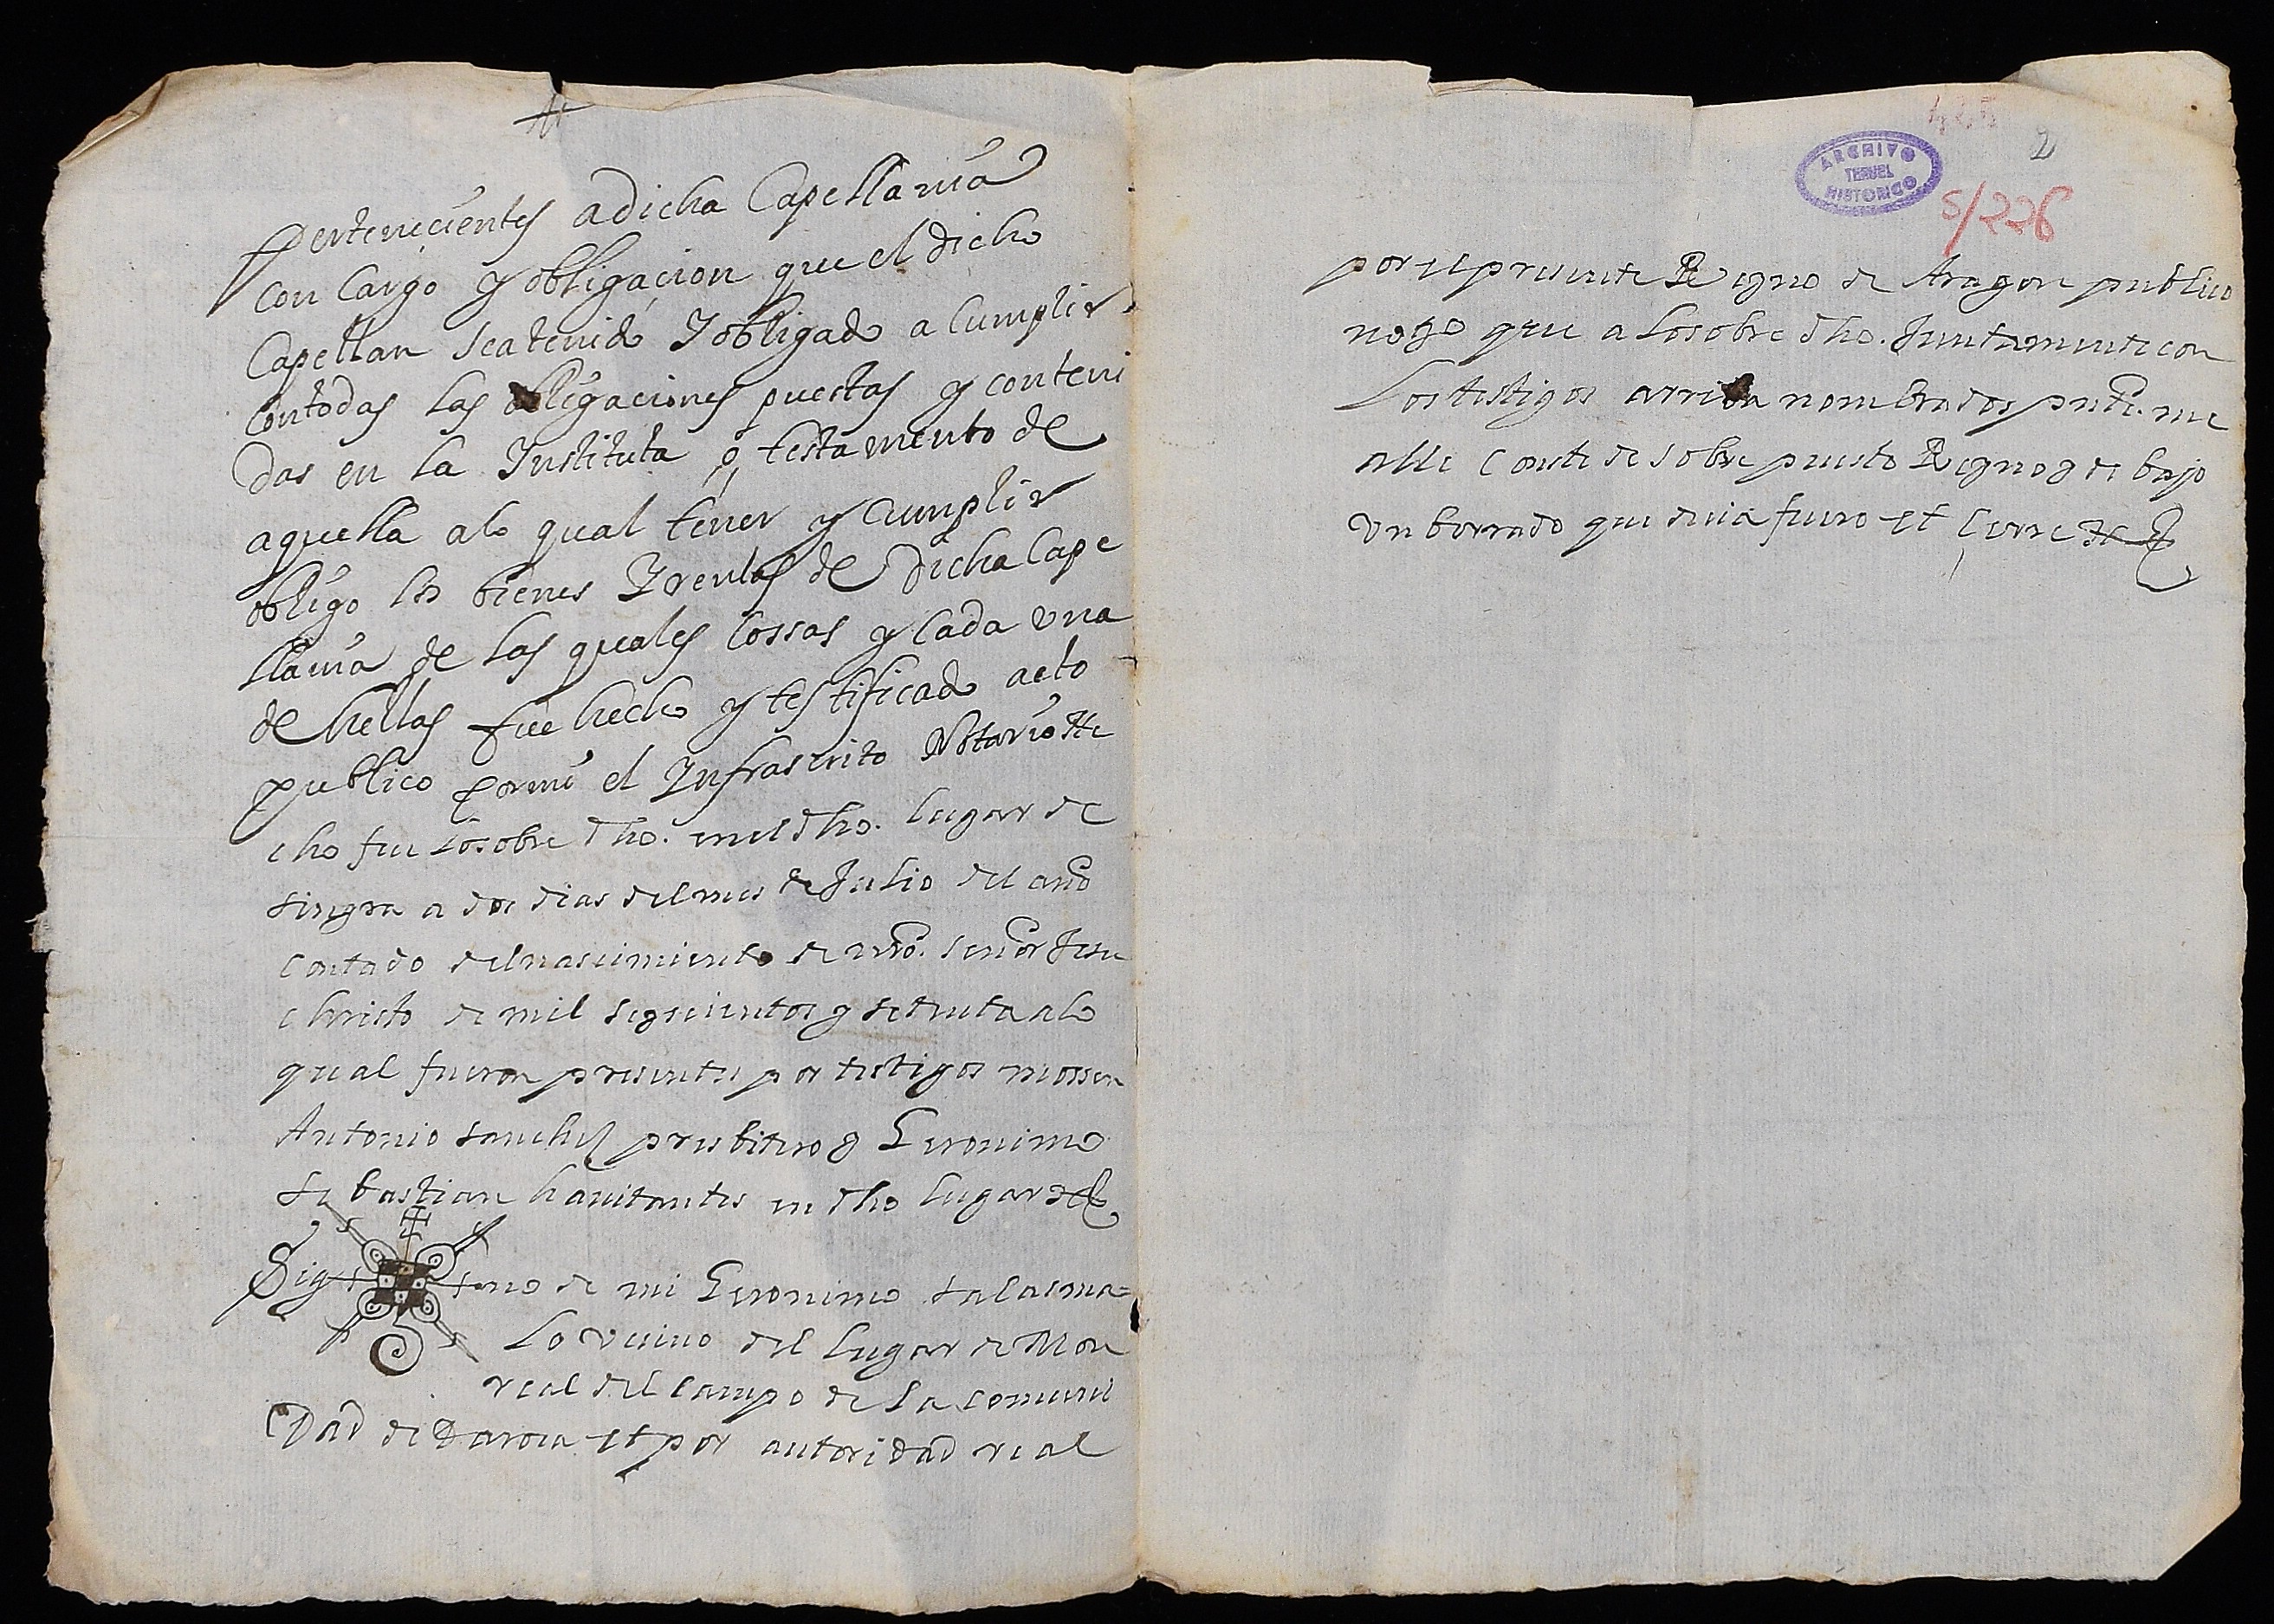 Pertenecientes a dicha Capellania
con Cargo y obligacion que el dicho
Capellan sea tenido Y obligado a Cumplir
con todas las obligaciones puestas y conteni
das en la Instituta o testamento de
aquella alo qual tener y Cumplir
obligo los bienes Y rentas de dicha Cape
llania de las quales cossas y Cada una
de hellas fue hecho y testificado acto
publico por mi el Infrascrito Notario He
cho fue lo sobre dho. en el dho. lugar de
singra a dos dias del mes de Julio del año
contado del nascimiento de nro. señor Jesu
christo de mil seyscientos y setenta alo
qual fueron presentes por testigos mossen
Antonio sanchez presbitero y Geronimo
sebastian havitantes en dho lugar
Sig no de mi Geronimo salas ma=
lo vecino del lugar de Mon
real del campo de la comuni
Dad de Daroca et por autoridad real
2
ARCHIVO
TERUEL
HISTORICO
S/226
por el presente Reyno de Aragon publico
noto que a lo sobre dho. Juntamente con
Los testigos arriba nombrados pnte. me
alle conste de sobre puesto Reyno y de bajo
un borrado que decia fuero et cerre